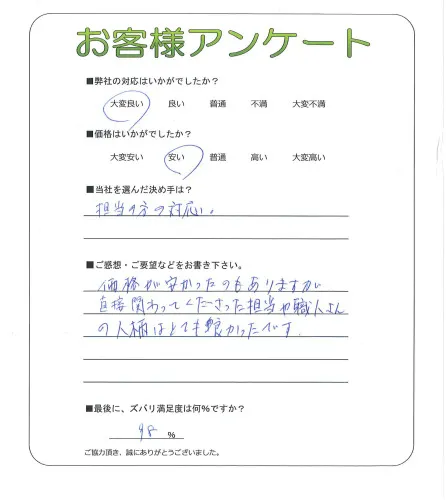 お客様アンケート
■弊社の対応はいかがでしたか？
大変良い 良い 普通 不満 大変不満
■価格はいかがでしたか？
大変安い 安い 普通 高い 大変高い
■当社を選んだ決め手は？
担当の方の対応い。
■ご感想・ご要望などをお書き下さい。
価格が安かったのもありますが
直接関わってくださった担当や職人さん
の人柄はとても良かったです。
■最後に、ズバリ満足度は何%ですか？
98 %
ご協力頂き、誠にありがとうございました。